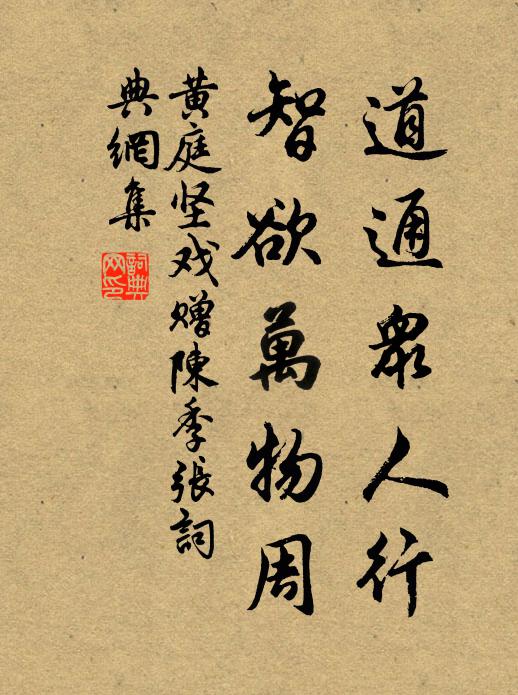 道通眾人行
智欲萬物周
黄庭坚戏赠陳季張詞
典網集
詞典
网印